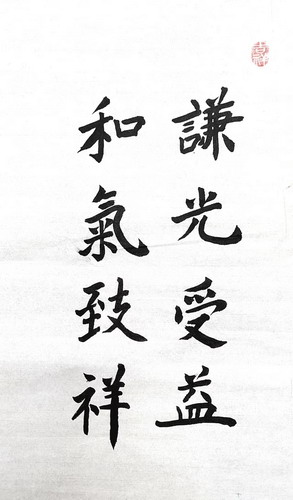 謙光受益
和氣致祥